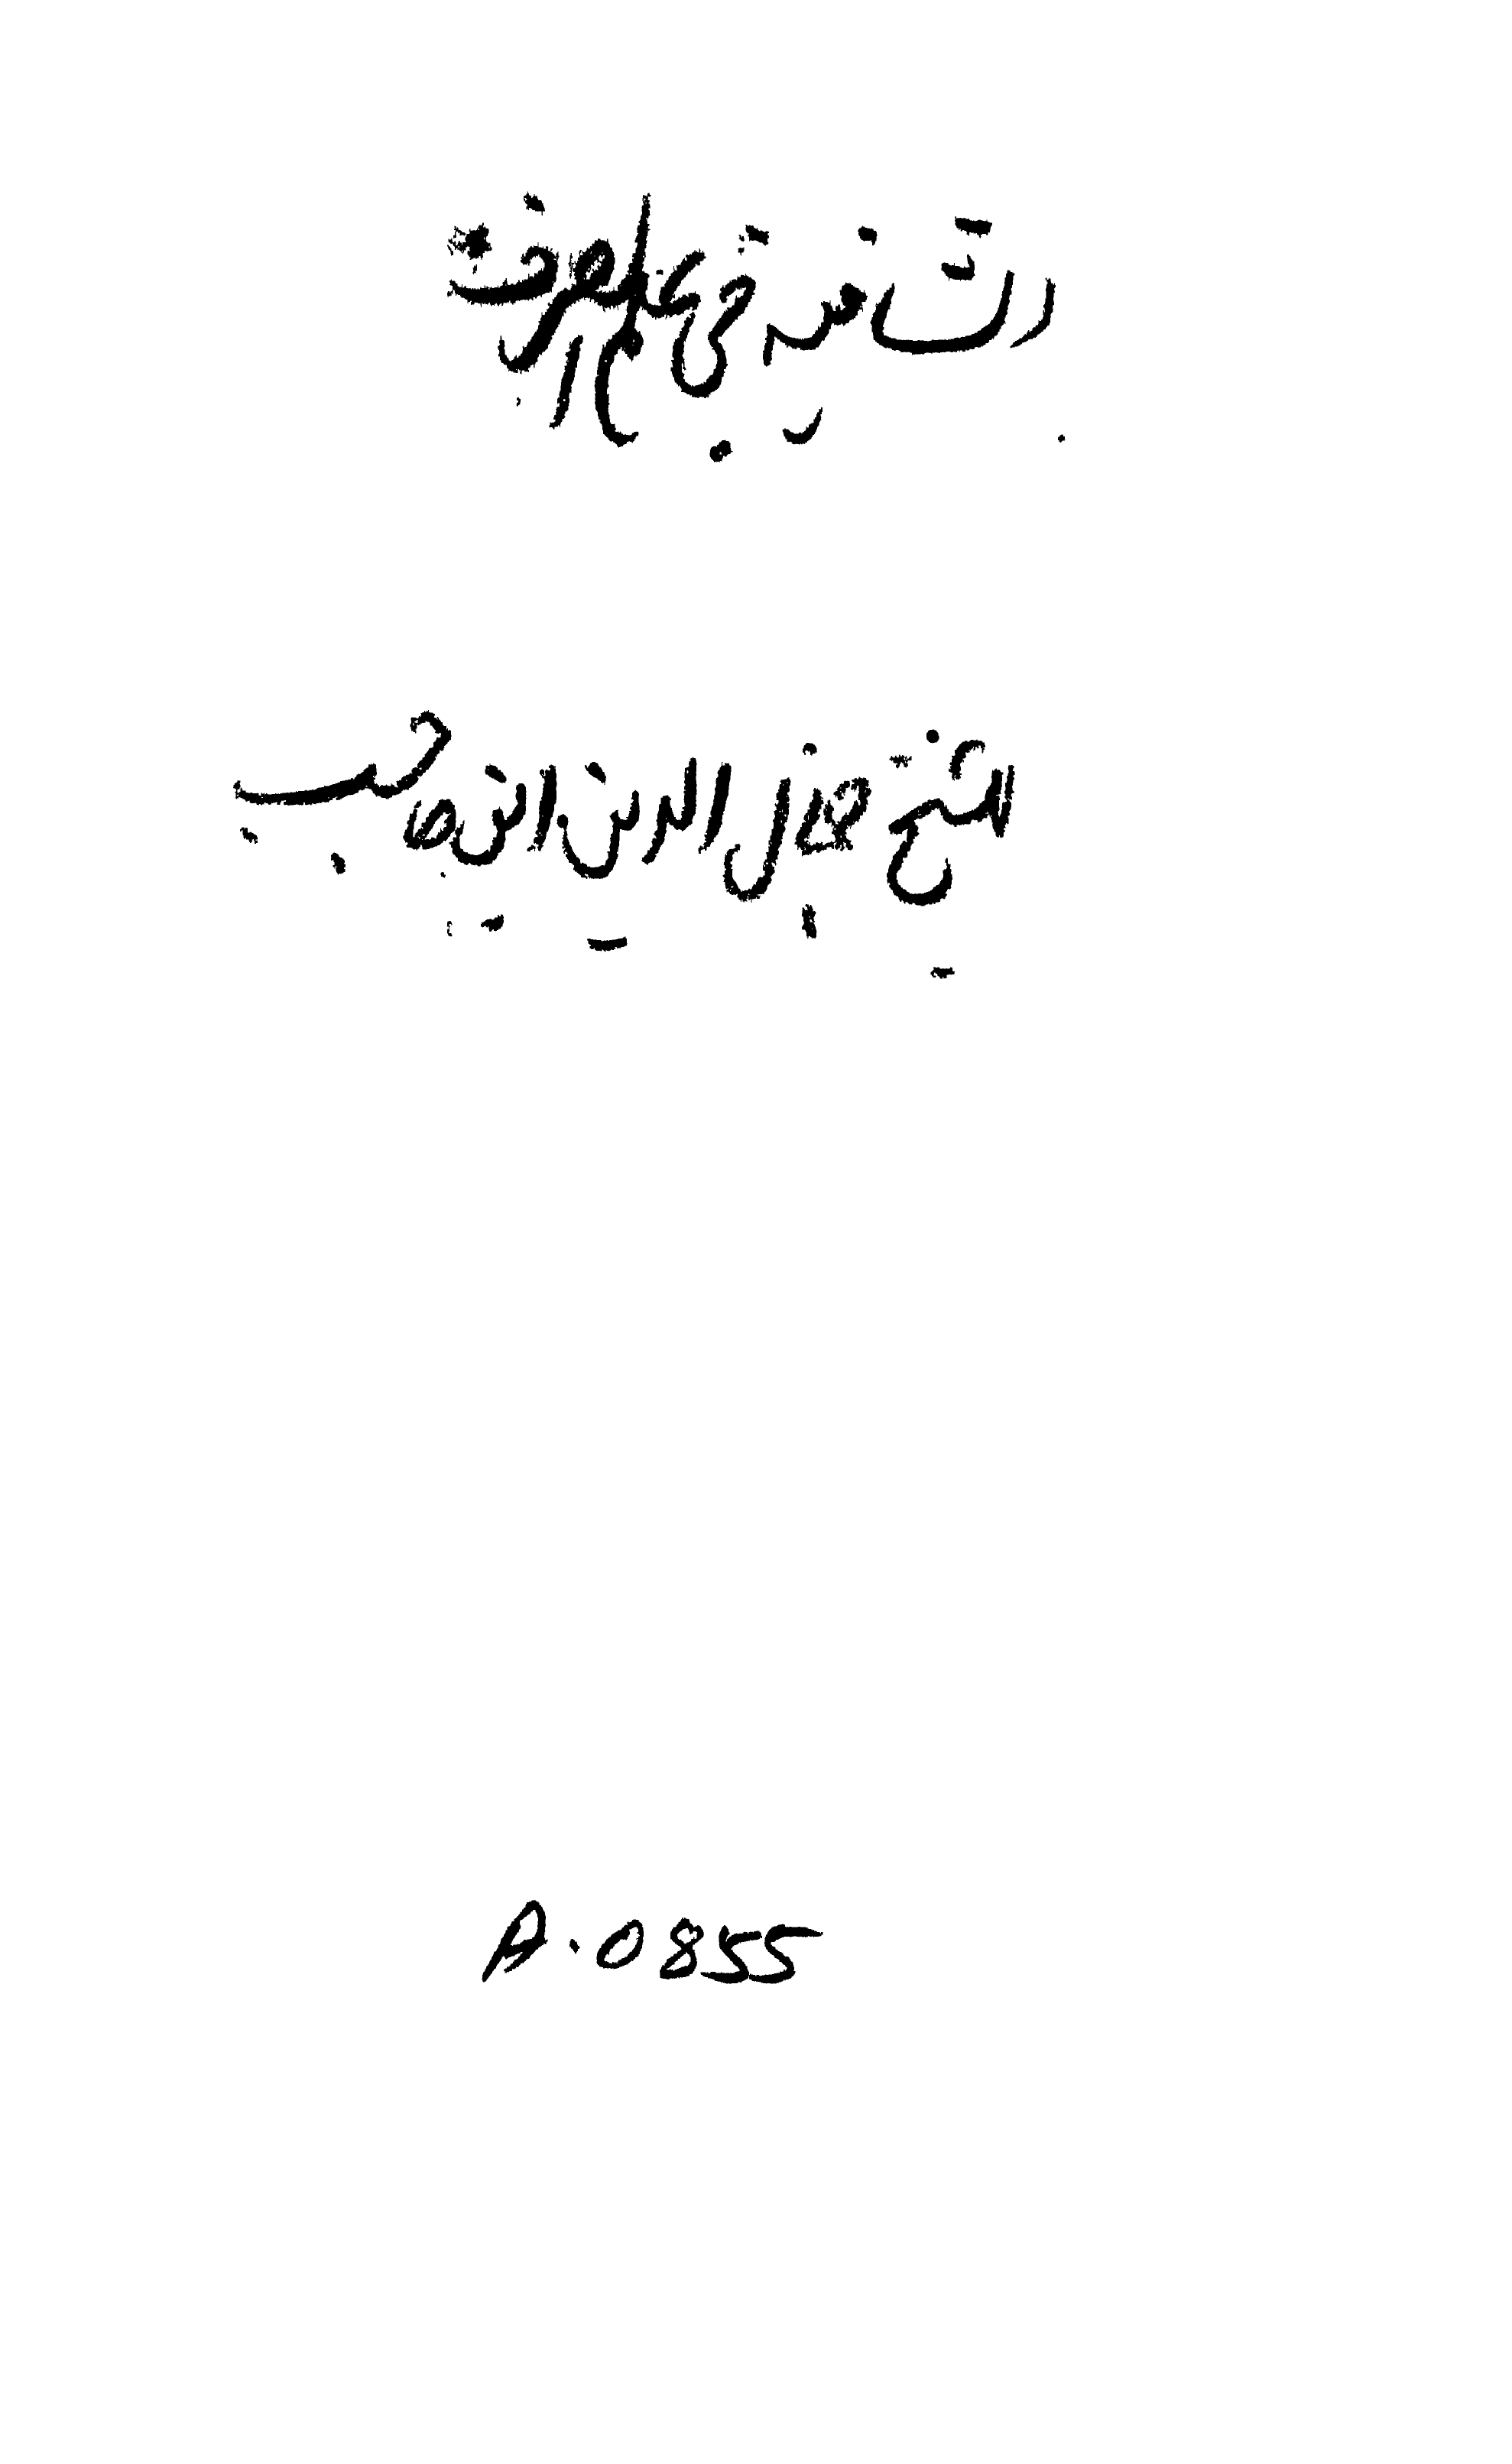 الشافیه في علم الصرف
للشیخ جمال الدین ابن حاجب
A.0855